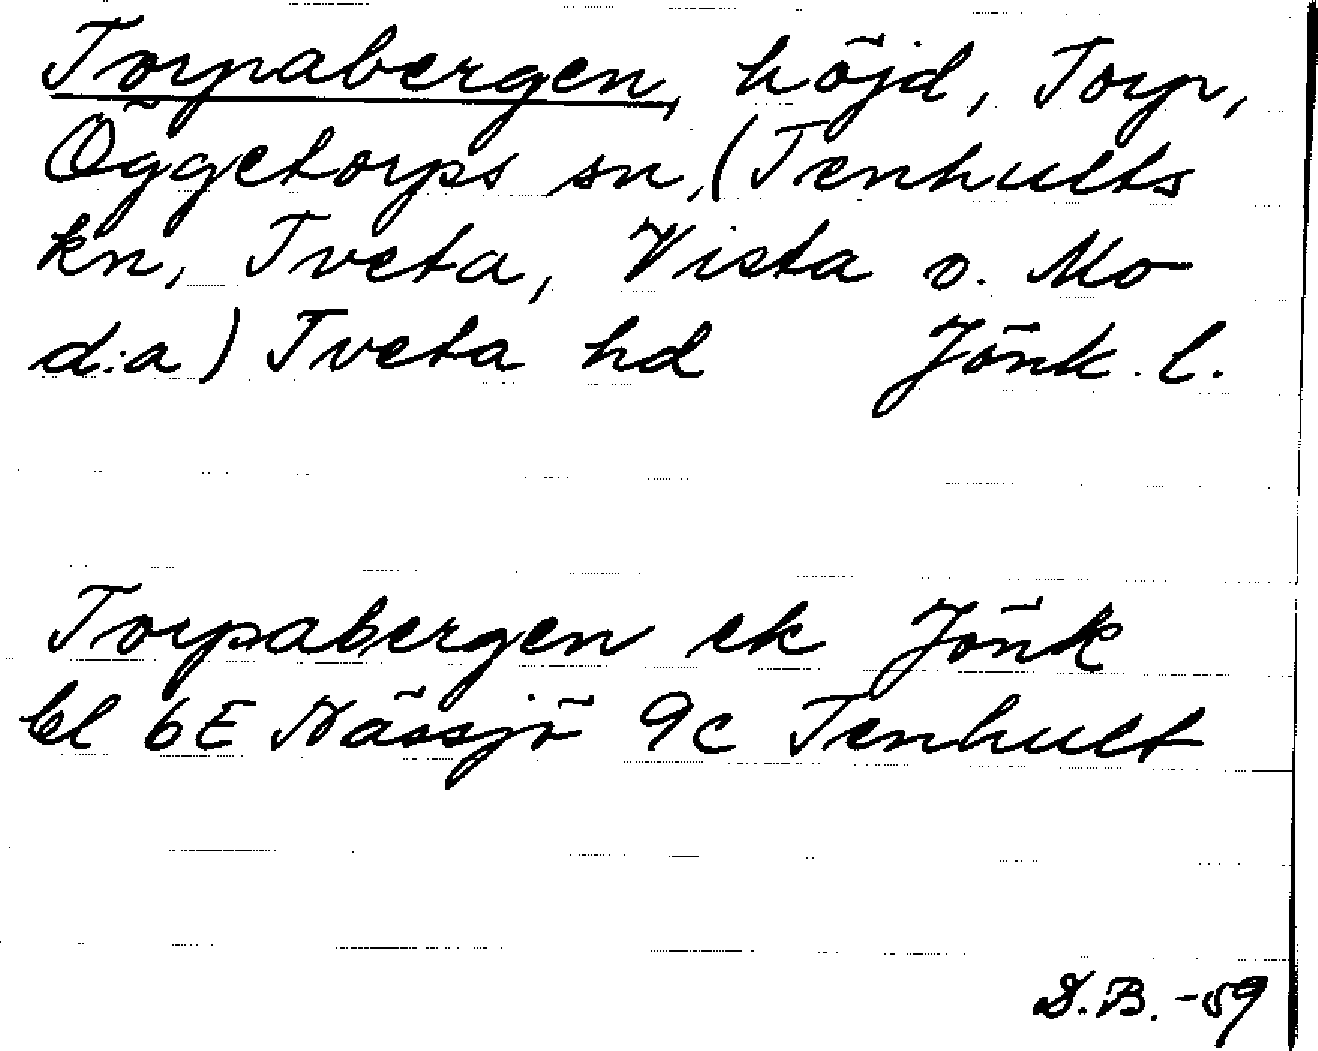 Torpabergen, höjd, Torp,
Öggetorps sn, (Tenhults
kn, Tveta, Vista o. Mo
d:a) Tveta hd Jönk. l.
Torpabergen ek Jönk
bl 6E Nässjö 9c Tenhult
D.B. -59